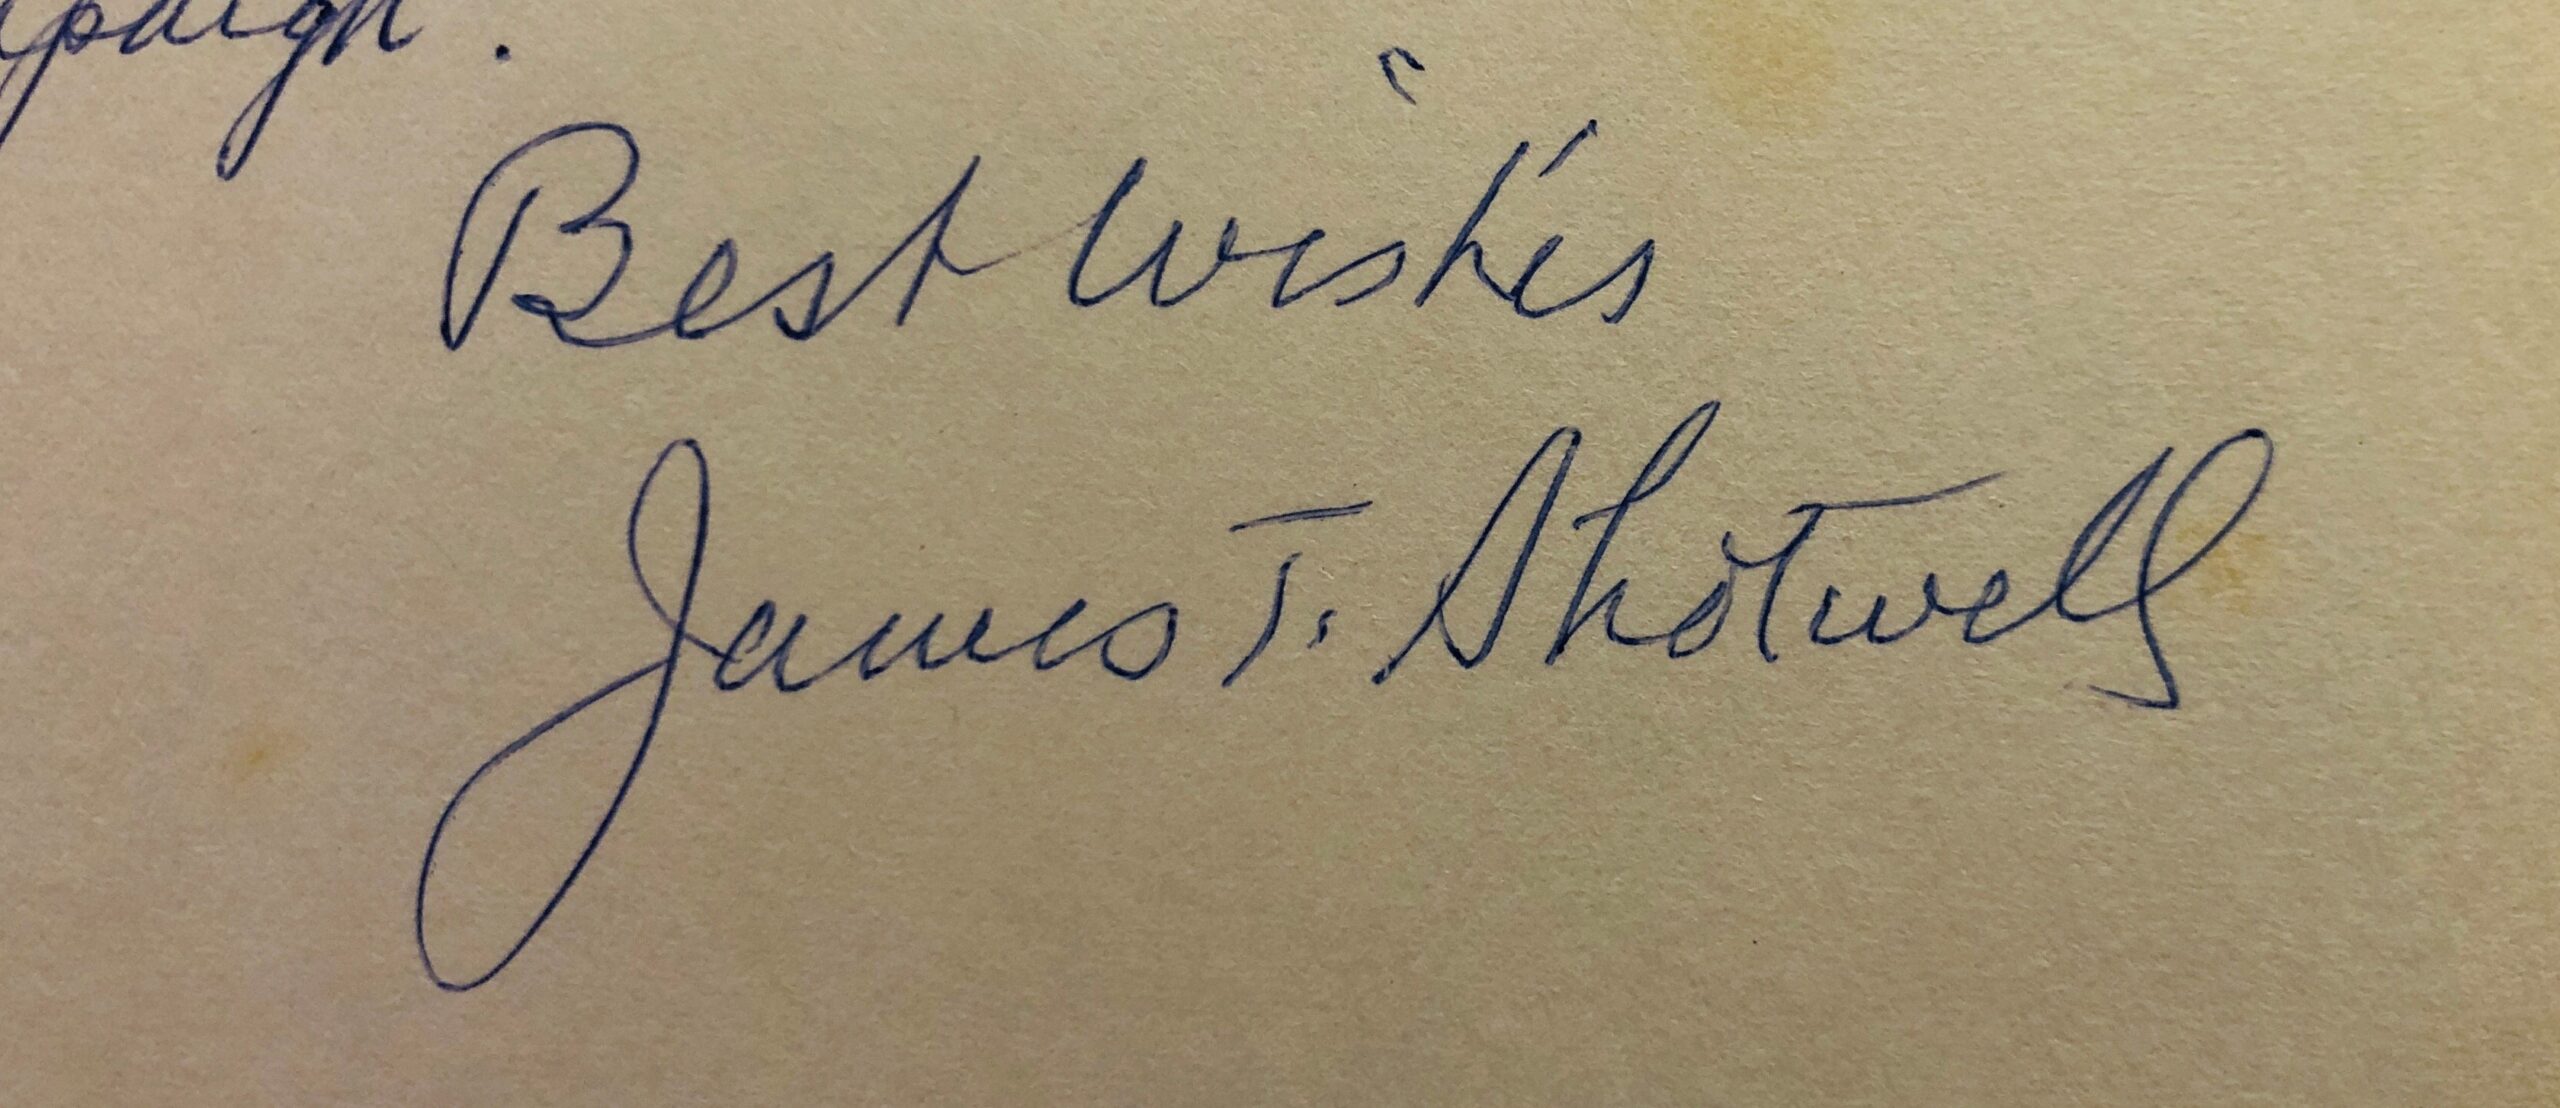 paign.
Best Wishes
James T. Shotwell